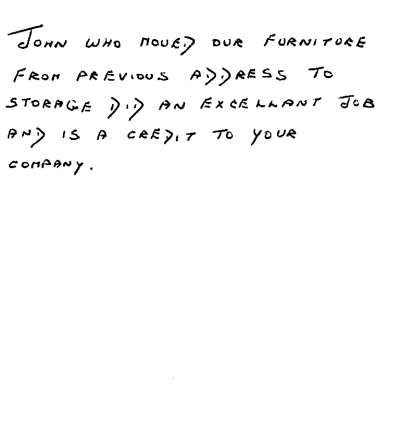 JOHN WHO MOVED OUR FURNITURE
FROM PREVIOUS ADDRESS TO
STORAGE DID AN EXCELLANT JOB
AND IS A CREDIT TO YOUR
COMPANY.